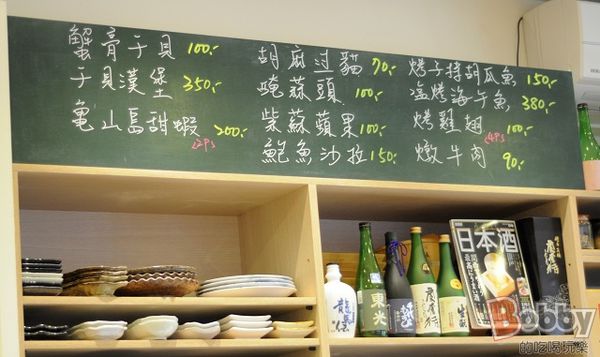 蟹膏干貝 100.-
干貝漢堡 350.-
龜山島甜蝦 200.-
胡麻过貓 70.-
醃蒜頭 100.-
紫蘇蘋果 100.-
鮑魚沙拉 150.-
烤子持胡瓜魚 150.-
塩烤海午魚 380.-
烤雞翅 100.-
燉牛肉 90.-
日本酒
Bobby
的吃喝玩樂